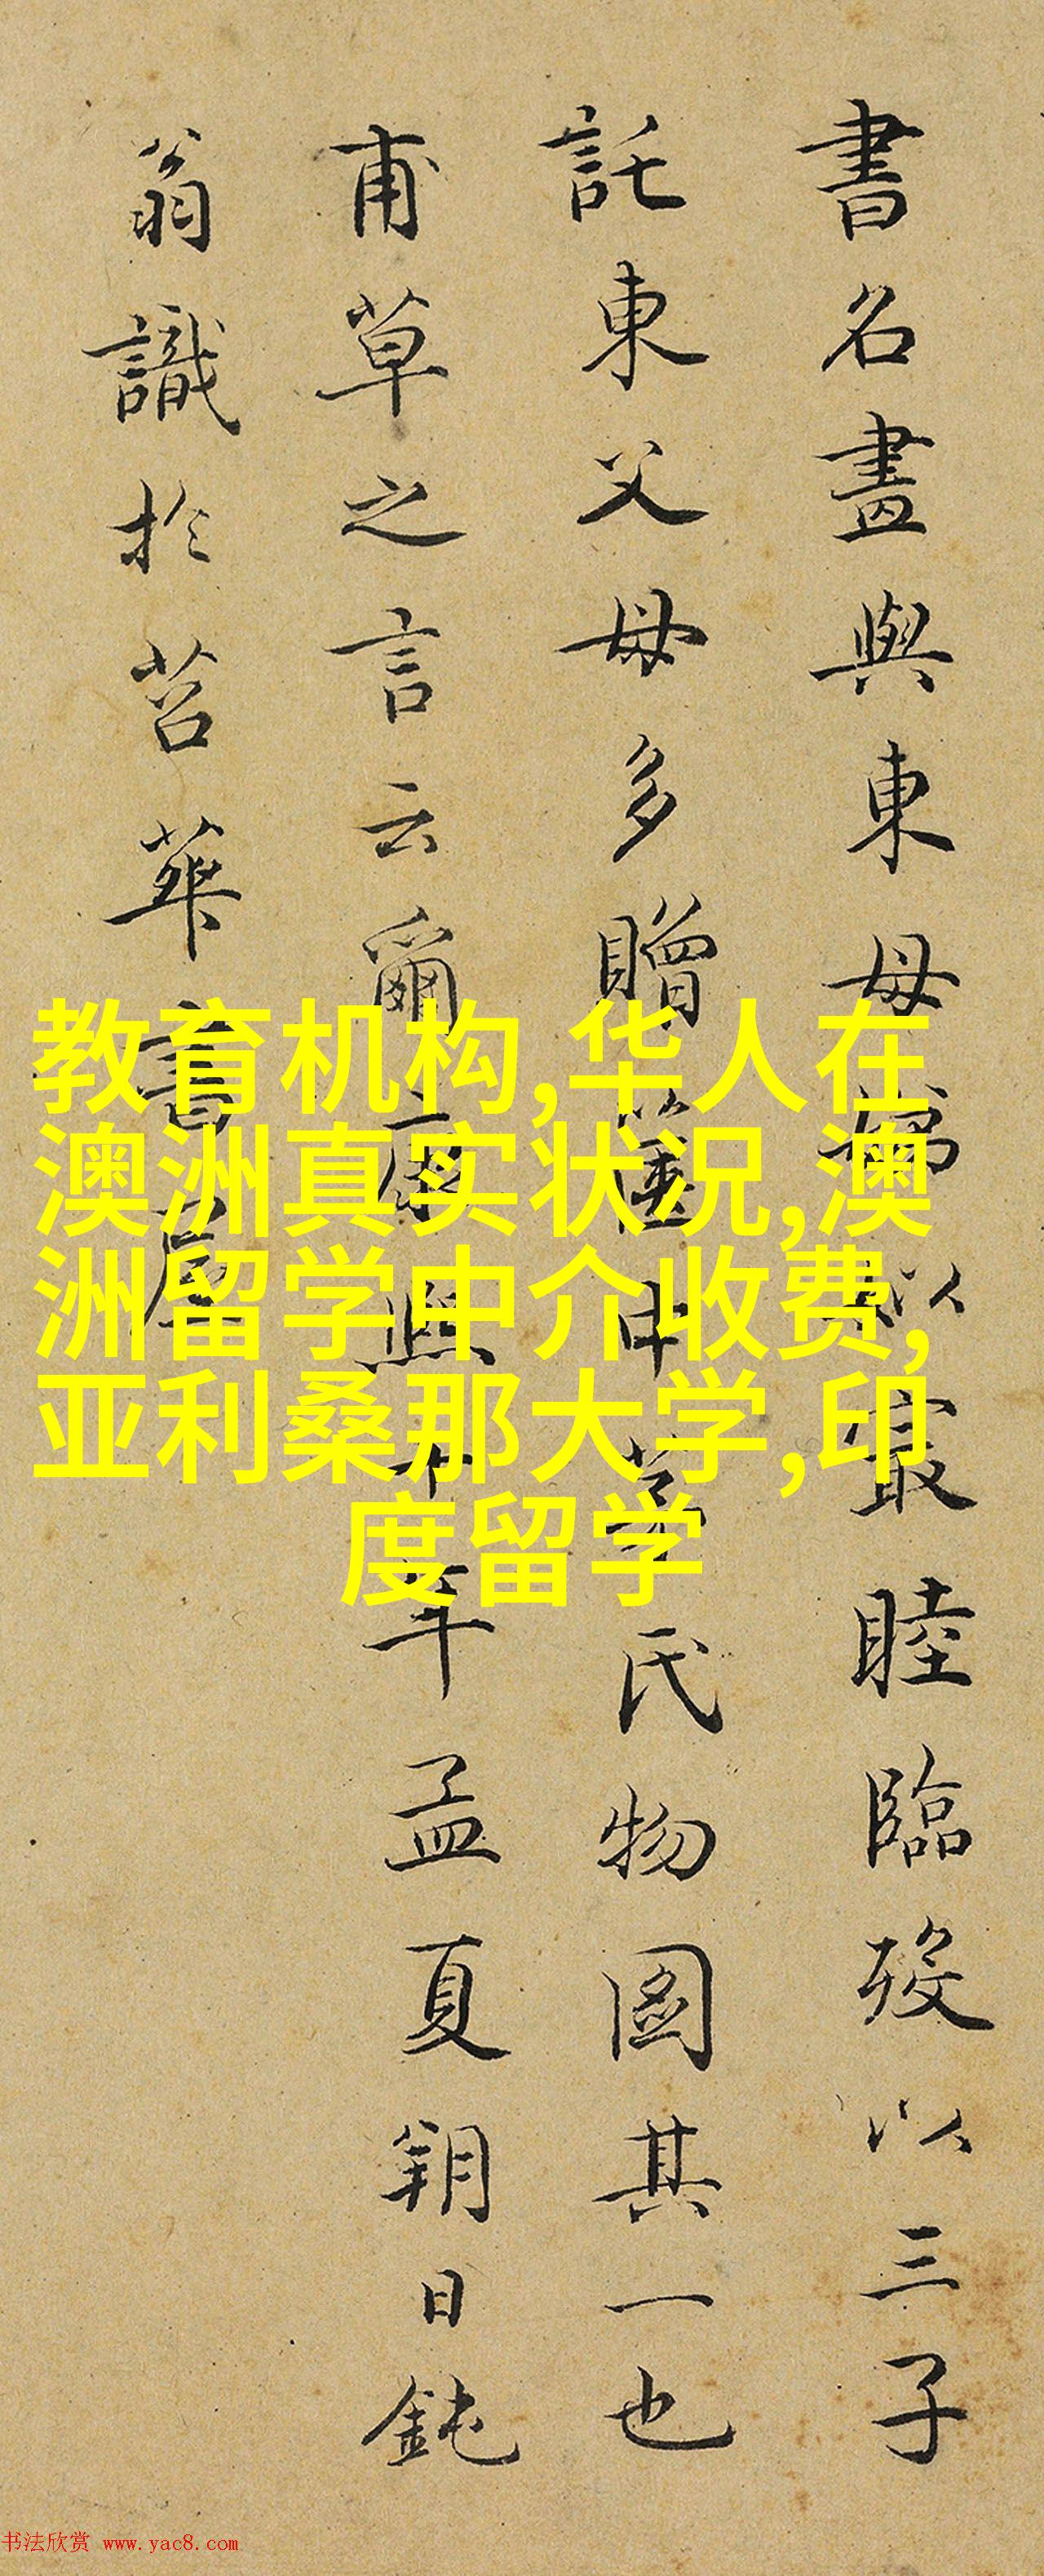 書名畫與東母以最睦臨歿以三子
託東父母多贈中茅氏物圖其一也
甫草之言云爾康熙十年孟夏朔日鈍
翁識於苕華書屋
教育机构,华人在
澳洲真实状况,澳
洲留学中介收费,
亚利桑那大学,印
度留学
书法欣赏 www.yac8.com